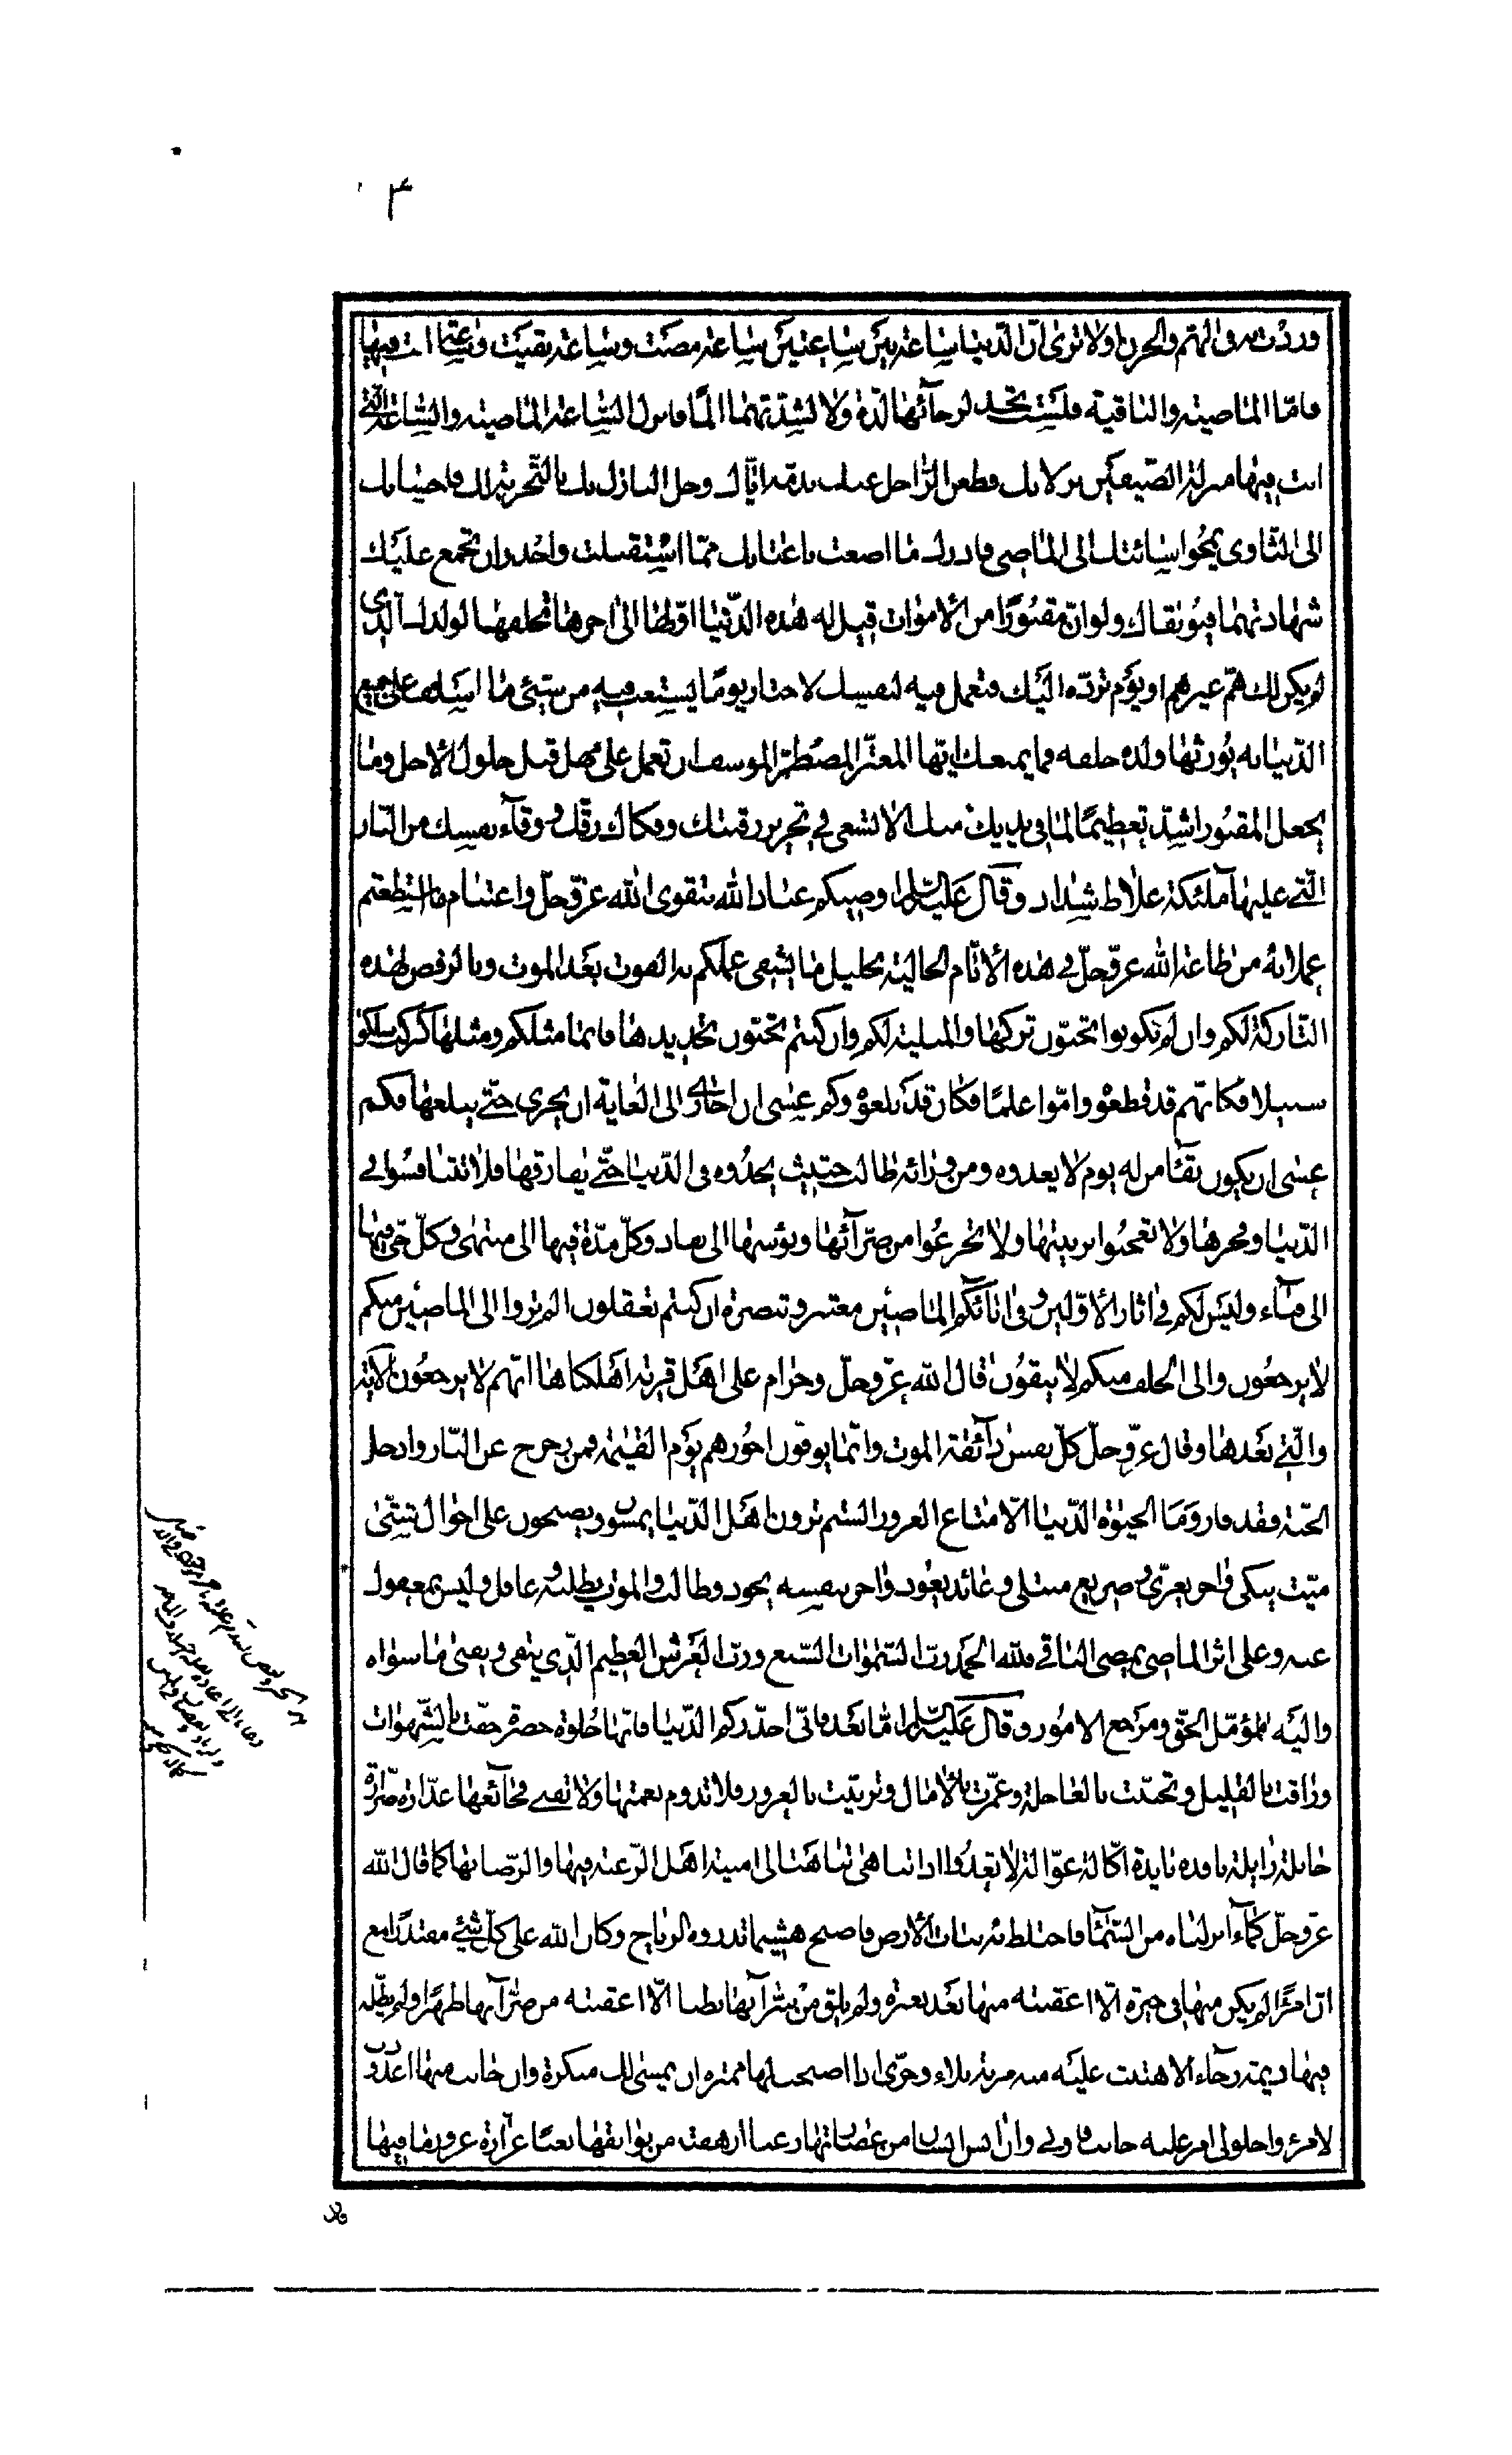 ٤
وزدت به في الهم والحزن اولا ترى ان الدنيا ساعة بين ساعتين ساعة مضت وساعة بقيت وساعة انت فيها
فاما الماضية والباقية فلست تجد لرخائهما لذة ولا لشدتهما الما فانزل الساعة الماضية والساعة التي
انت فيها منزلة الضيفين نزلا بك فظعن الراحل عنك بذمه اياك وحل النازل بك بالتجربة لك فاحسانك
الى الثاوي يمحو اسائتك الى الماضي فادرك ما اضعت باعتابك مما استقبلت واحذر ان تجمع عليك
شهادتهما فيوبقاك ولو ان مقبورا من الاموات قيل له هذه الدنيا اولها الى اخرها تخلفها لولدك الذي
لم يكن لك هم غيرهم او يوم نرده اليك فتعمل فيه لنفسك لاختار يوما يستعتب فيه من سيئ ما اسلف على جميع
الدنيا به يورثها ولده خلفه فما يمنعك ايها المغتر المضطر الموسف ان تعمل على مهل قبل حلول الاجل وما
يجعل المقبور اشد تعظيما لما في يديك منك الا لتسعى في تحرير رقبتك وفكاك رقك ووقاء نفسك من النار
التي عليها ملئكة غلاظ شداد وقال عليه السلم اوصيكم عباد الله بتقوى الله عز وجل واغتنام ما استطعتم
عملا به من طاعة الله عز وجل في هذه الايام الخالية بجليل ما يشفى عملكم به الفوت بعد الموت وبالرفض لهذه
التاركة لكم وان لم تكونوا تحبون تركها والمبلية لكم وان كنتم تحبون تجديدها فانما مثلكم ومثلها كركب سلكوا
سبيلا فكانهم قد قطعوه واموا علما فكان قد بلغوه وكم عسى ان اجازى الى الغاية ان يجرى حتى يبلغها فكم
عسى ان يكون بقاء من له يوم لا يعدوه ومن ورائه طالب حثيث يحدوه في الدنيا حتى يفارقها فلا تتنافسوا في
الدنيا وفخرها ولا تعجبوا بزينتها ولا تجزعوا من ضرائها وبؤسها الى نفاد وكل مدة فيها الى منتهى وكل حي فيها
الى فناء وليس لكم في اثار الاولين وفي ابائكم الماضين معتبر وتبصرة ان كنتم تعقلون الم تروا الى الماضين منكم
لا يرجعون والى الخلف منكم لا يبقون قال الله عز وجل وحرام على اهل قرية اهلكناها انهم لا يرجعون الاية
والتي بعدها وقال عز وجل كل نفس ذائقة الموت وانما يوفون اجورهم يوم القيمة فمن زحزح عن النار وادخل
الجنة فقد فاز وما الحيوة الدنيا الا متاع الغرور الستم ترون اهل الدنيا يمسون ويصبحون على احوال شتى
ميت يبكى واخر يعزى وصريع مبتلى وعائد يعود واخر بنفسه يجود وطالب والموت يطلبه وغافل وليس بمغفول
عنه وعلى اثر الماضي يمضى الباقي فلله الحمد رب السموات السبع ورب العرش العظيم الذي يبقى ويفنى ما سواه
واليه المؤمل الحق ومرجع الامور وقال عليه السلم اما بعد فاني احذركم الدنيا فانها حلوة خضرة حفت بالشهوات
وراقت بالقليل وتحببت بالعاجلة وعمرت بالامال وتزينت بالغرور فلا تدوم نعمتها ولا تفنى فجائعها غدارة ضرارة
خاتلة زايلة نافدة بايدة اكالة غوالة لا تعدوا اذا تناهى تناهت الى امنية اهل الرغبة فيها والرضا بها كما قال الله
عز وجل كماء انزلناه من السماء فاختلط به نبات الارض فاصبح هشيما تذروه الرياح وكان الله على كل شيء مقتدرا مع
ان امرأ لم يكن منها في حبرة الا اعقبته منها بعد بعبرة ولم يلق من سرائها بطنا الا اعقبته من ضرائها ظهرا ولم يظله
فيها ديمة رخاء الا هتنت عليه منه مزنة بلاء وحرى اذا اصبحت لها منتصره ان يمسى لك متنكرة وان جانب منها اعذوذب
لامرئ واحلولى امر عليه جانب فاوبى وان انس انسان من غضارتها رغبا ارهقته من بوائقها تعبا غرارة غرور ما فيها
فان